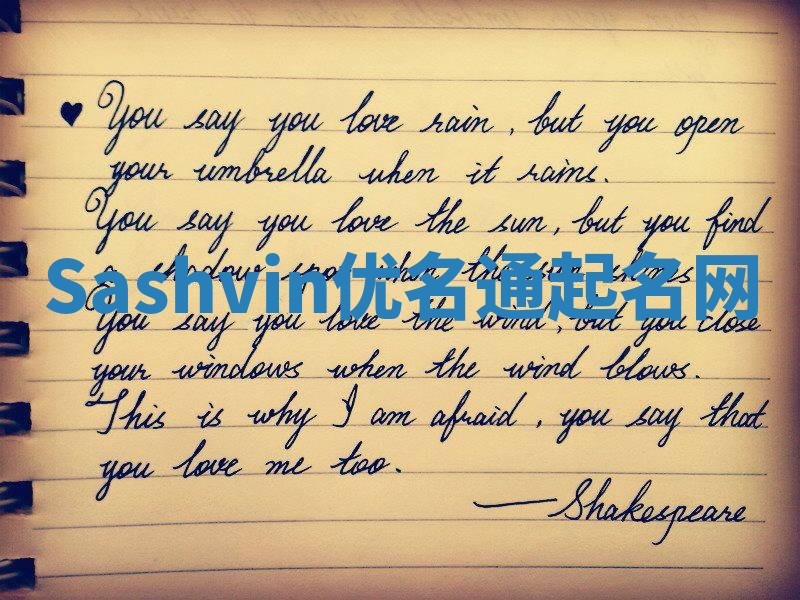 ♥ You say you love rain, but you open
your umbrella when it rains.
You say you love the sun, but you find
a shadow spot when the sun shines
Sashvin优名通起名网
You say you love the wind, but you close
your windows when the wind blows.
This is why I am afraid, you say that
you love me too.
— Shakespeare